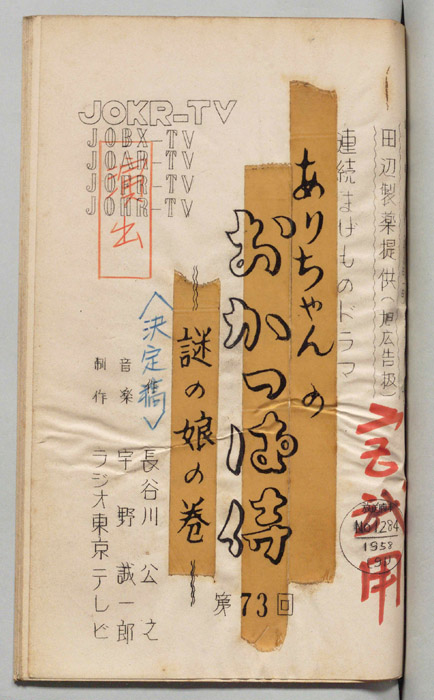 田辺製薬提供(旭広告扱)
連続まげものドラマ
ありちゃんの
おかっぱ侍
謎の娘の巻
第73回
<決定稿>
長谷川公之
音楽 宇野誠一郎
制作 ラジオ東京テレビ
JOKR-TV
JOBX-TV
JOAR-TV
JOHR-TV
演出
No.1284
1958